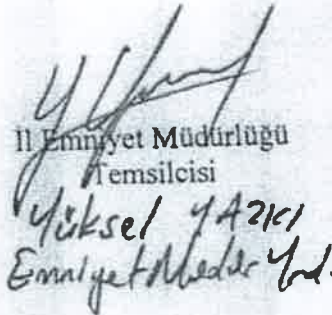 İl Emniyet Müdürlüğü
Temsilcisi
Yüksel YAZICI
Emniyet Müdür Yrd.